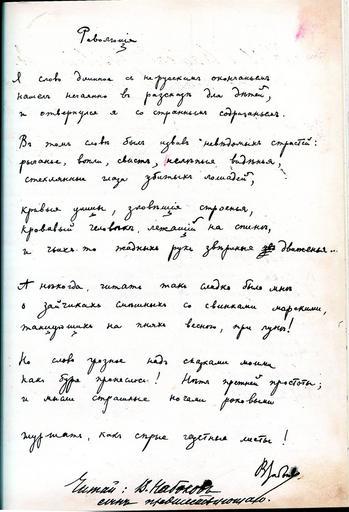 Революція
Я слово длинное съ нерусскимъ окончаньемъ
нашелъ нечаянно въ разсказѣ для дѣтей,
и отвернулся я со страннымъ содроганьемъ.
Въ томъ словѣ былъ извивъ невѣдомыхъ страстей:
рычанье, вопли, свистъ, нелѣпыя видѣнья,
стеклянные глаза убитыхъ лошадей,
кривыя улицы, зловѣщія строенья,
кровавый человѣкъ, лежащій на спинѣ,
и чьихъ-то жадныхъ рукъ звѣриныя движенья...
А нѣкогда, читать такъ сладко было мнѣ
о зайчикахъ смѣшныхъ со свинками морскими,
танцующихъ на пняхъ весною, при лунѣ!
Но слово грозное надъ сказками моими
какъ буря пронеслось! Нѣтъ прежней простоты;
и мысли страшныя ночами роковыми
шуршатъ, какъ сѣрые газетные листы!
Читай: В. Набоковъ
сынъ